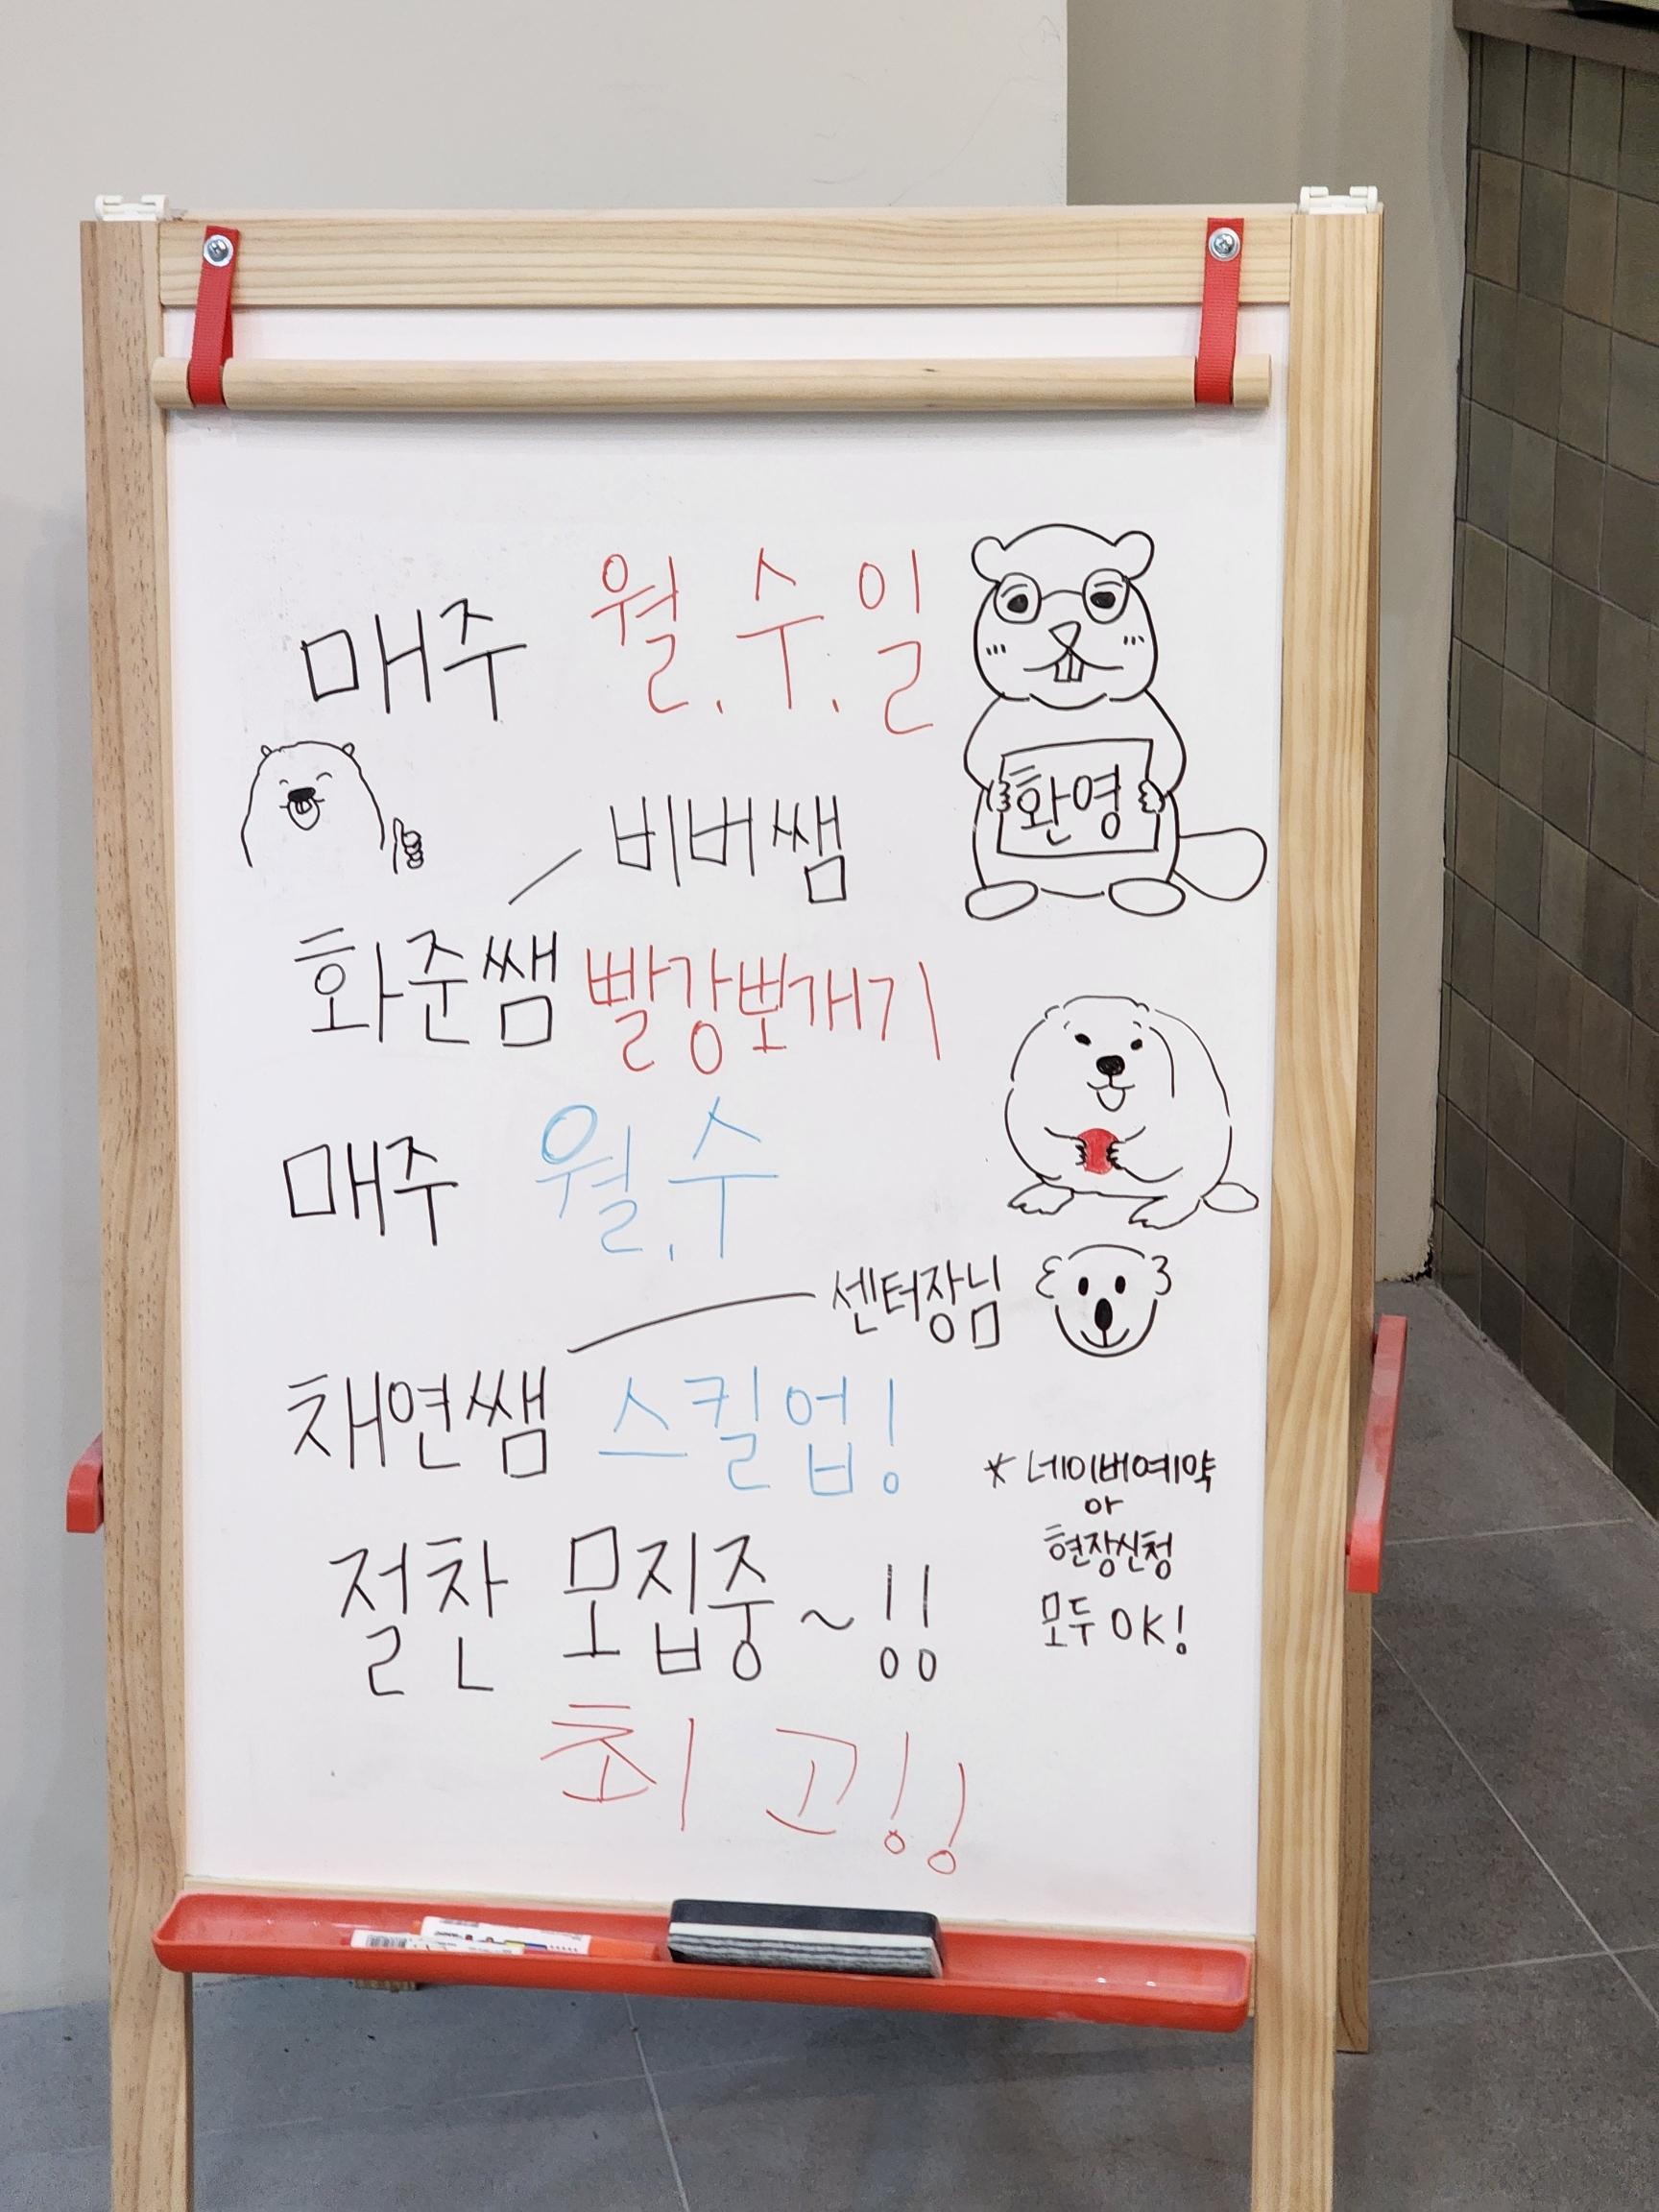 매주 월.수.일
환영
비버쌤
화준쌤 빨강뽀개기
매주 월.수
센터장님
채연쌤 스킬업!
* 네이버예약
or
현장신청
모두 OK!
절찬 모집중~!!
최고!!